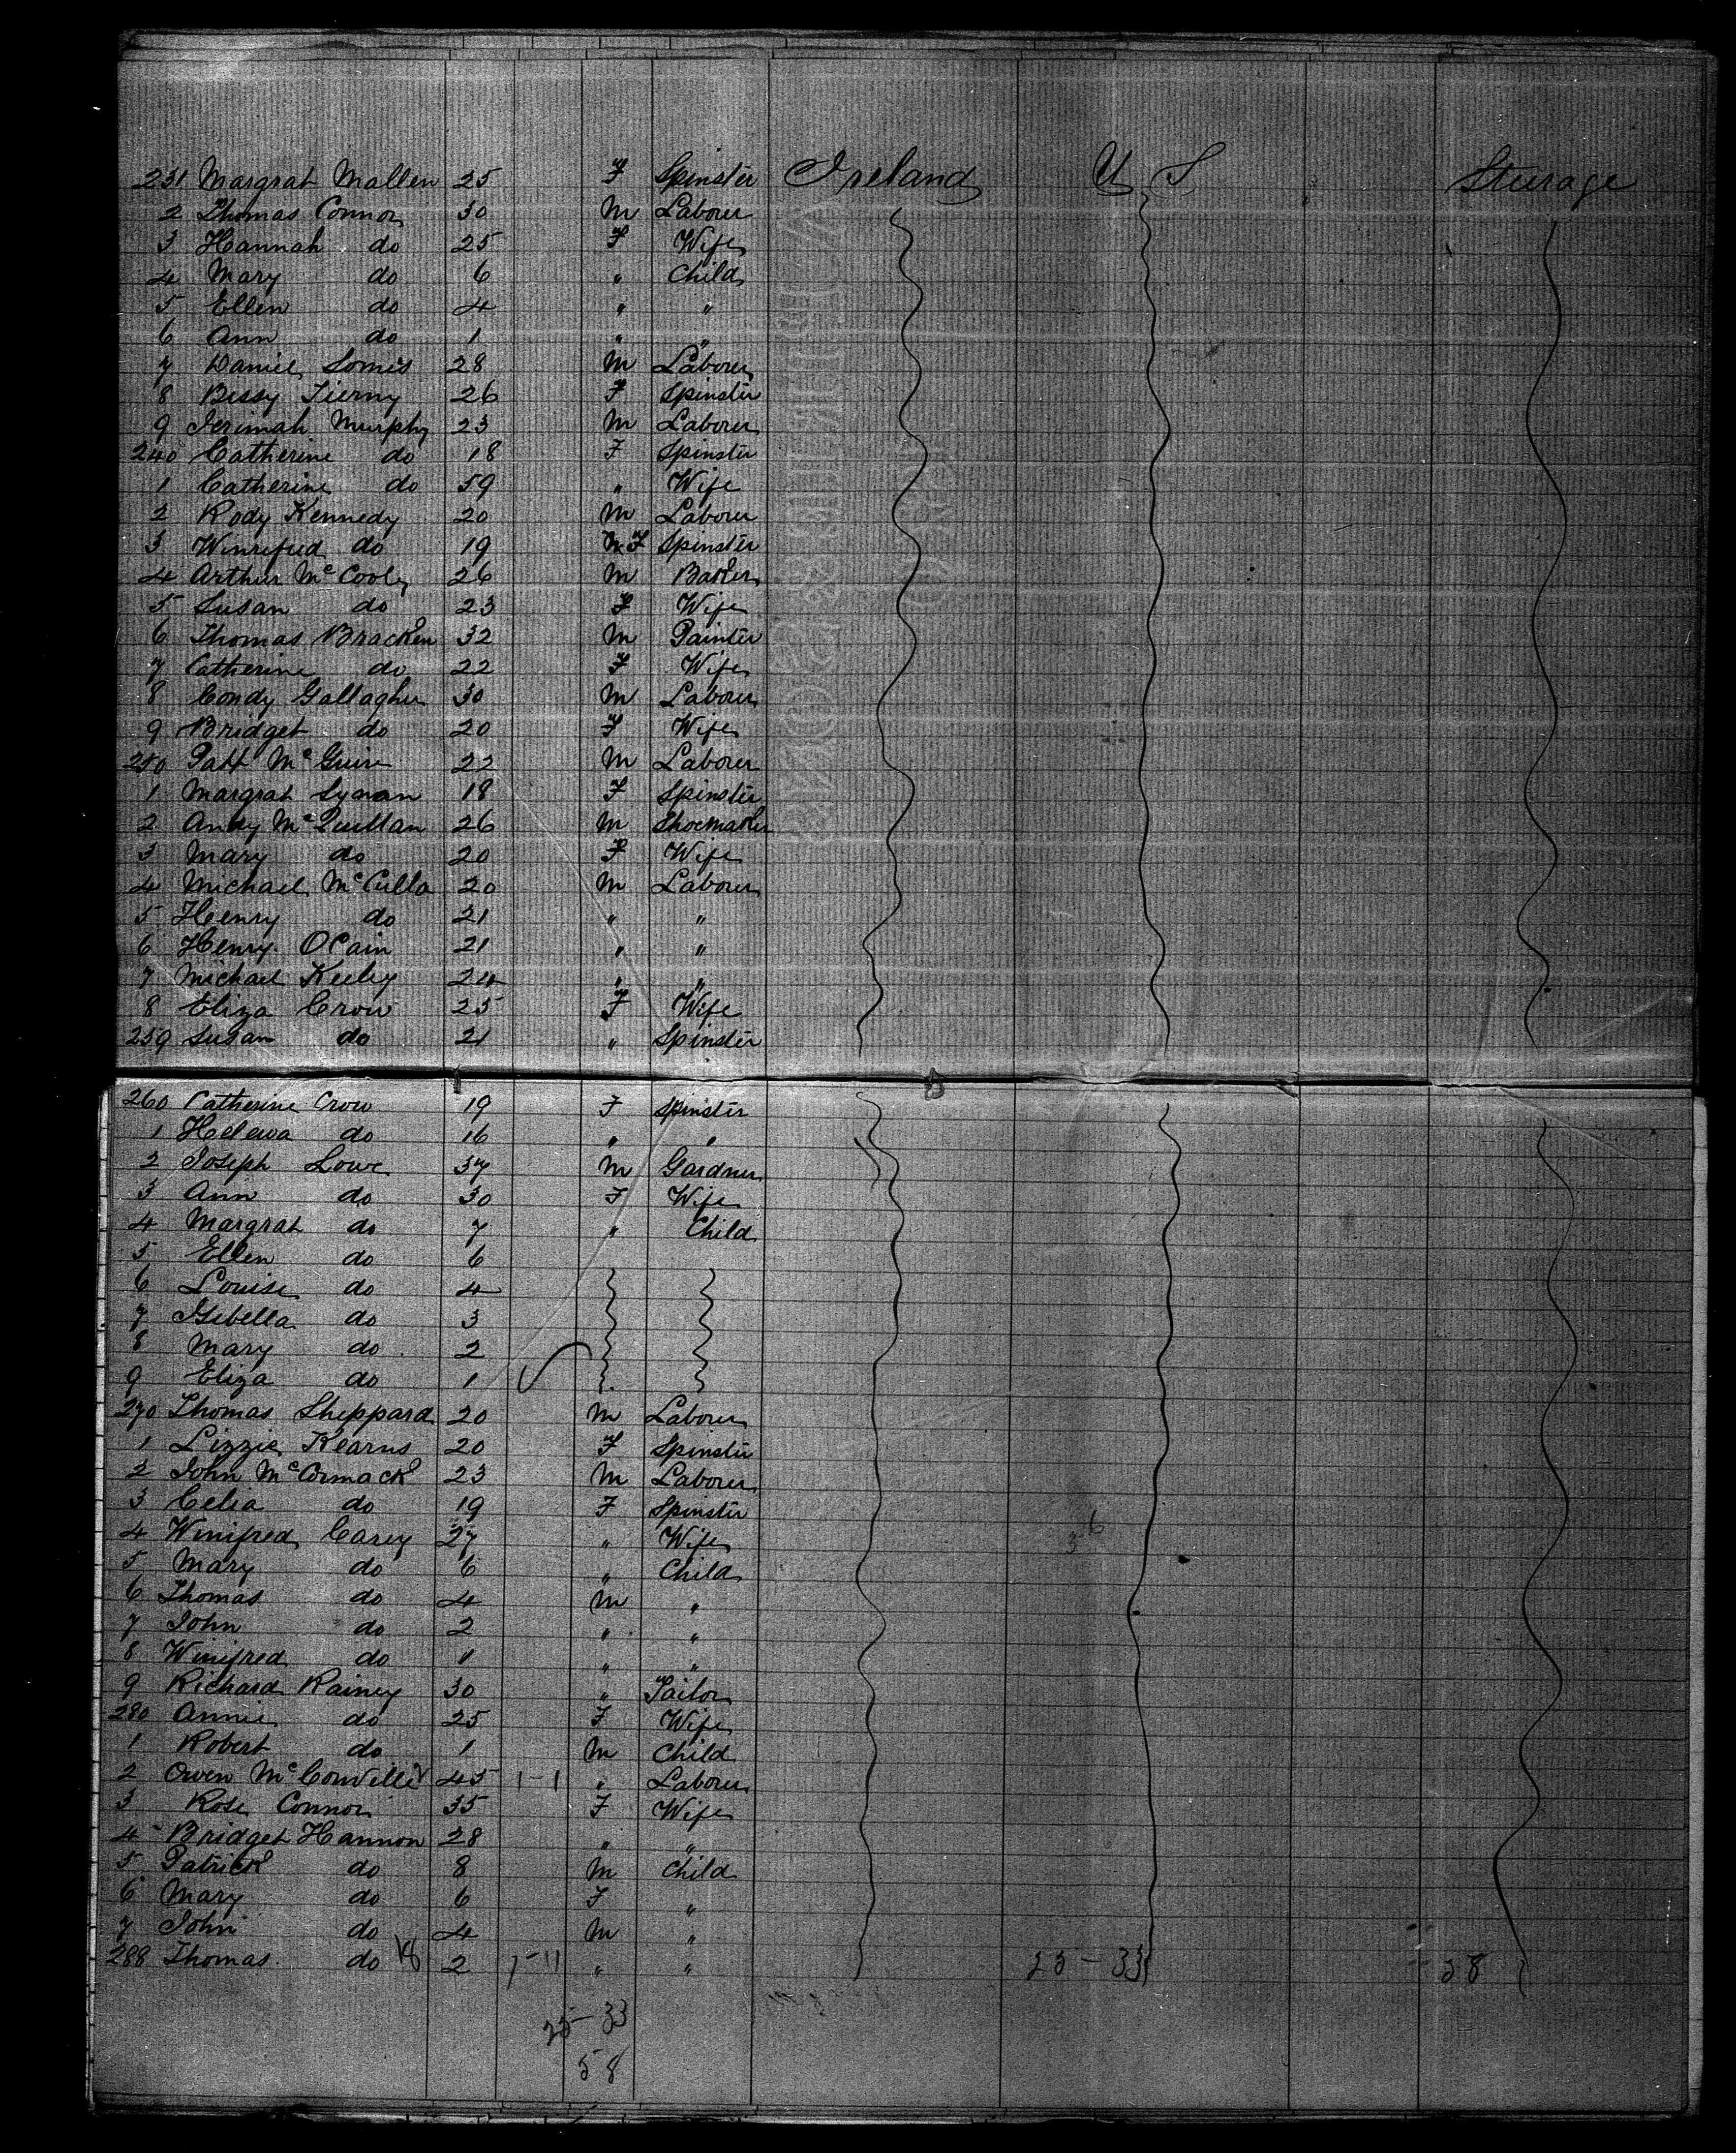 231 Margrat Mallen 25 F Spinster Ireland U S Sturage
2 Thomas Connor 30 M Laborer
3 Hannah do 25 F Wife
4 Mary do 6 " Child
5 Ellen do 4 " "
6 Ann do 1 " "
7 Daniel Lomis 28 M Laborer
8 Bessy Tierny 26 F Spinster
9 Jerimah Murphy 23 M Laborer
240 Catherine do 18 F Spinster
1 Catherine do 59 " Wife
2 Rody Kennedy 20 M Laborer
3 Winrifred do 19 F Spinster
4 Arthur McCooly 26 M Baker
5 Susan do 23 F Wife
6 Thomas Bracken 32 M Painter
7 Catherine do 22 F Wife
8 Condy Gallagher 30 M Laborer
9 Bridget do 20 F Wife
250 Patt McGuire 22 M Laborer
1 Margrat Synan 18 F Spinster
2 Andy McQuillan 26 M Shoemaker
3 Mary do 20 F Wife
4 Michael McCulla 20 M Laborer
5 Henry do 21 " "
6 Henry OCain 21 " "
7 Michael Keeley 24 " "
8 Eliza Crow 25 F Wife
259 Susan do 21 " Spinster
260 Catherine Crow 19 F Spinster
1 do 16 " "
2 Joseph Lowe 37 M Gardner
3 Ann do 30 F Wife
4 Margrat do 7 " Child
5 Ellen do 6
6 Louise do 4
7 Isibella do 3
8 Mary do 2
9 Eliza do 1
270 Thomas Sheppard 20 M Laborer
1 Lizzie Kearns 20 F Spinster
2 John McCormack 23 M Laborer
3 Celia do 19 F Spinster
4 Winifred Carey 27 " Wife
5 Mary do 6 " Child
6 Thomas do 4 M "
7 John do 2 " "
8 Winifred do 1 " "
9 Richard Rainey 30 " Tailor
280 Annie do 25 F Wife
1 Robert do 1 M Child
2 Owen McConville 45 1-1 " Laborer
3 Rose Connor 35 F Wife
4 Bridget Hannon 28 " "
5 Patrick do 8 M Child
6 Mary do 6 F "
7 John do 4 M "
288 Thomas do 18 2 1-11 " " 25-33 58
25-33
58